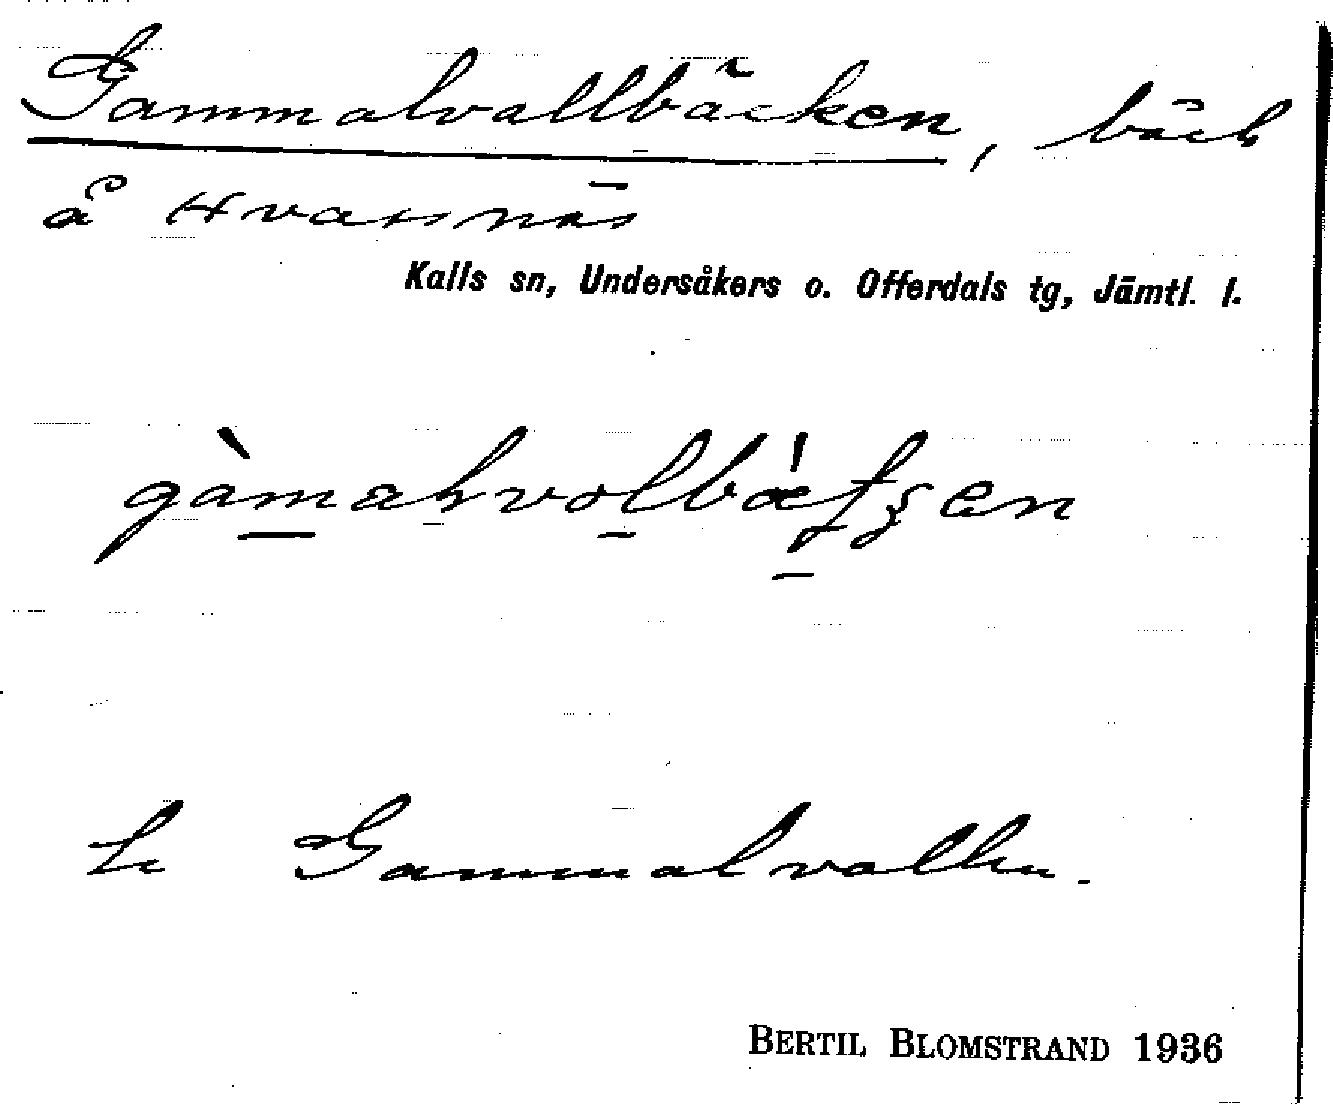 Gammalvallbäcken, bäck
å Kvarnnäs
Kalls sn, Undersåkers o. Offerdals tg, Jämtl. l.
Gammalvallen.
BERTIL BLOMSTRAND 1936